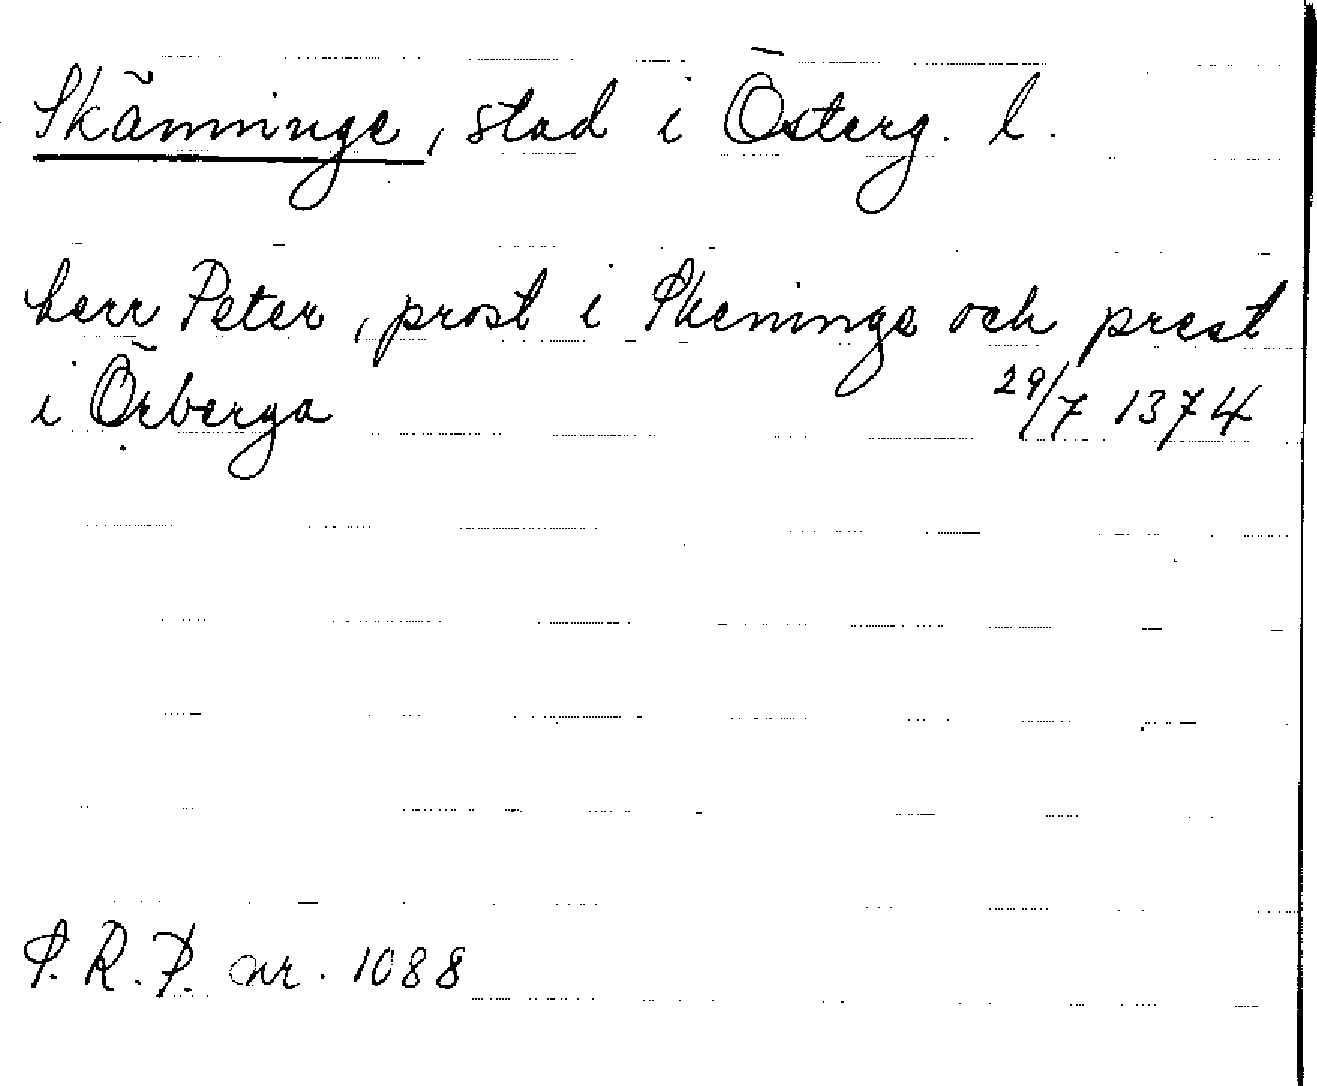 Skänninge, stad i Österg. l.
herr Peter, prost i Skeninge och prest
i Örberga 29/7 1374
S.R.P. nr. 1088